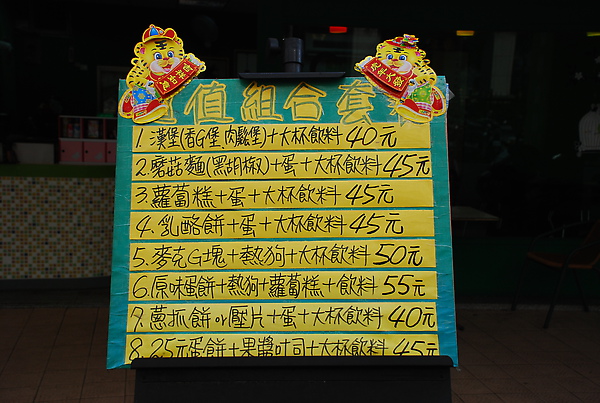 值組合套
1. 漢堡(香G堡.肉鬆堡)+大杯飲料40元
2.蘑菇麵(黑胡椒)+蛋+大杯飲料45元
3.蘿蔔糕+蛋+大杯飲料45元
4.乳酪餅+蛋+大杯飲料45元
5.麥克G塊+熱狗+大杯飲料50元
6.原味蛋餅+熱狗+蘿蔔糕+飲料55元
7.蔥抓餅or壓片+蛋+大杯飲料40元
8.25元蛋餅+果醬吐司+大杯飲料45元